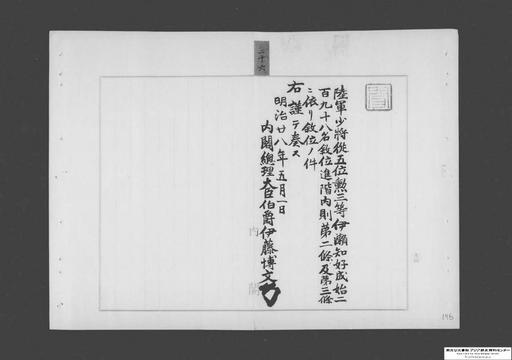 三十六
陸軍少將從五位勲三等伊瀬知好成始二
百九十八名敘位進階内則第二條及第三條
ニ依リ敘位ノ件
右謹テ奏ス
明治廿八年五月一日
内閣總理大臣伯爵伊藤博文
内閣